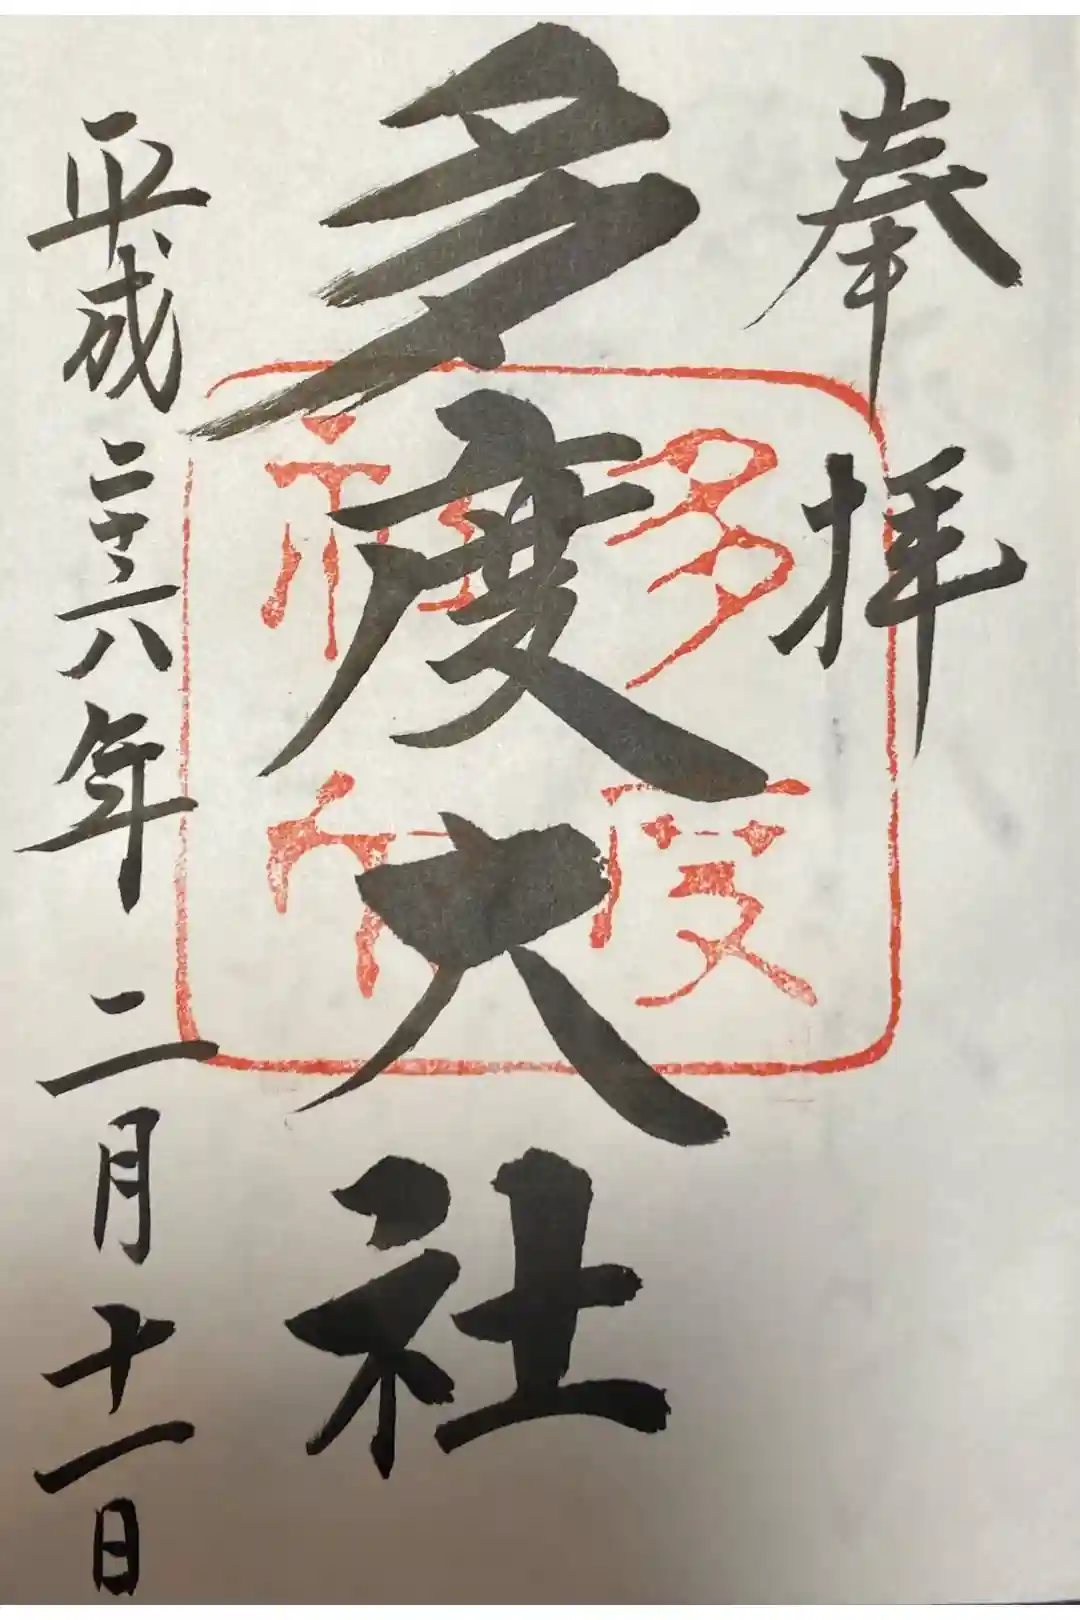 奉拝
多度大社
多度
神
平成二十六年二月十一日